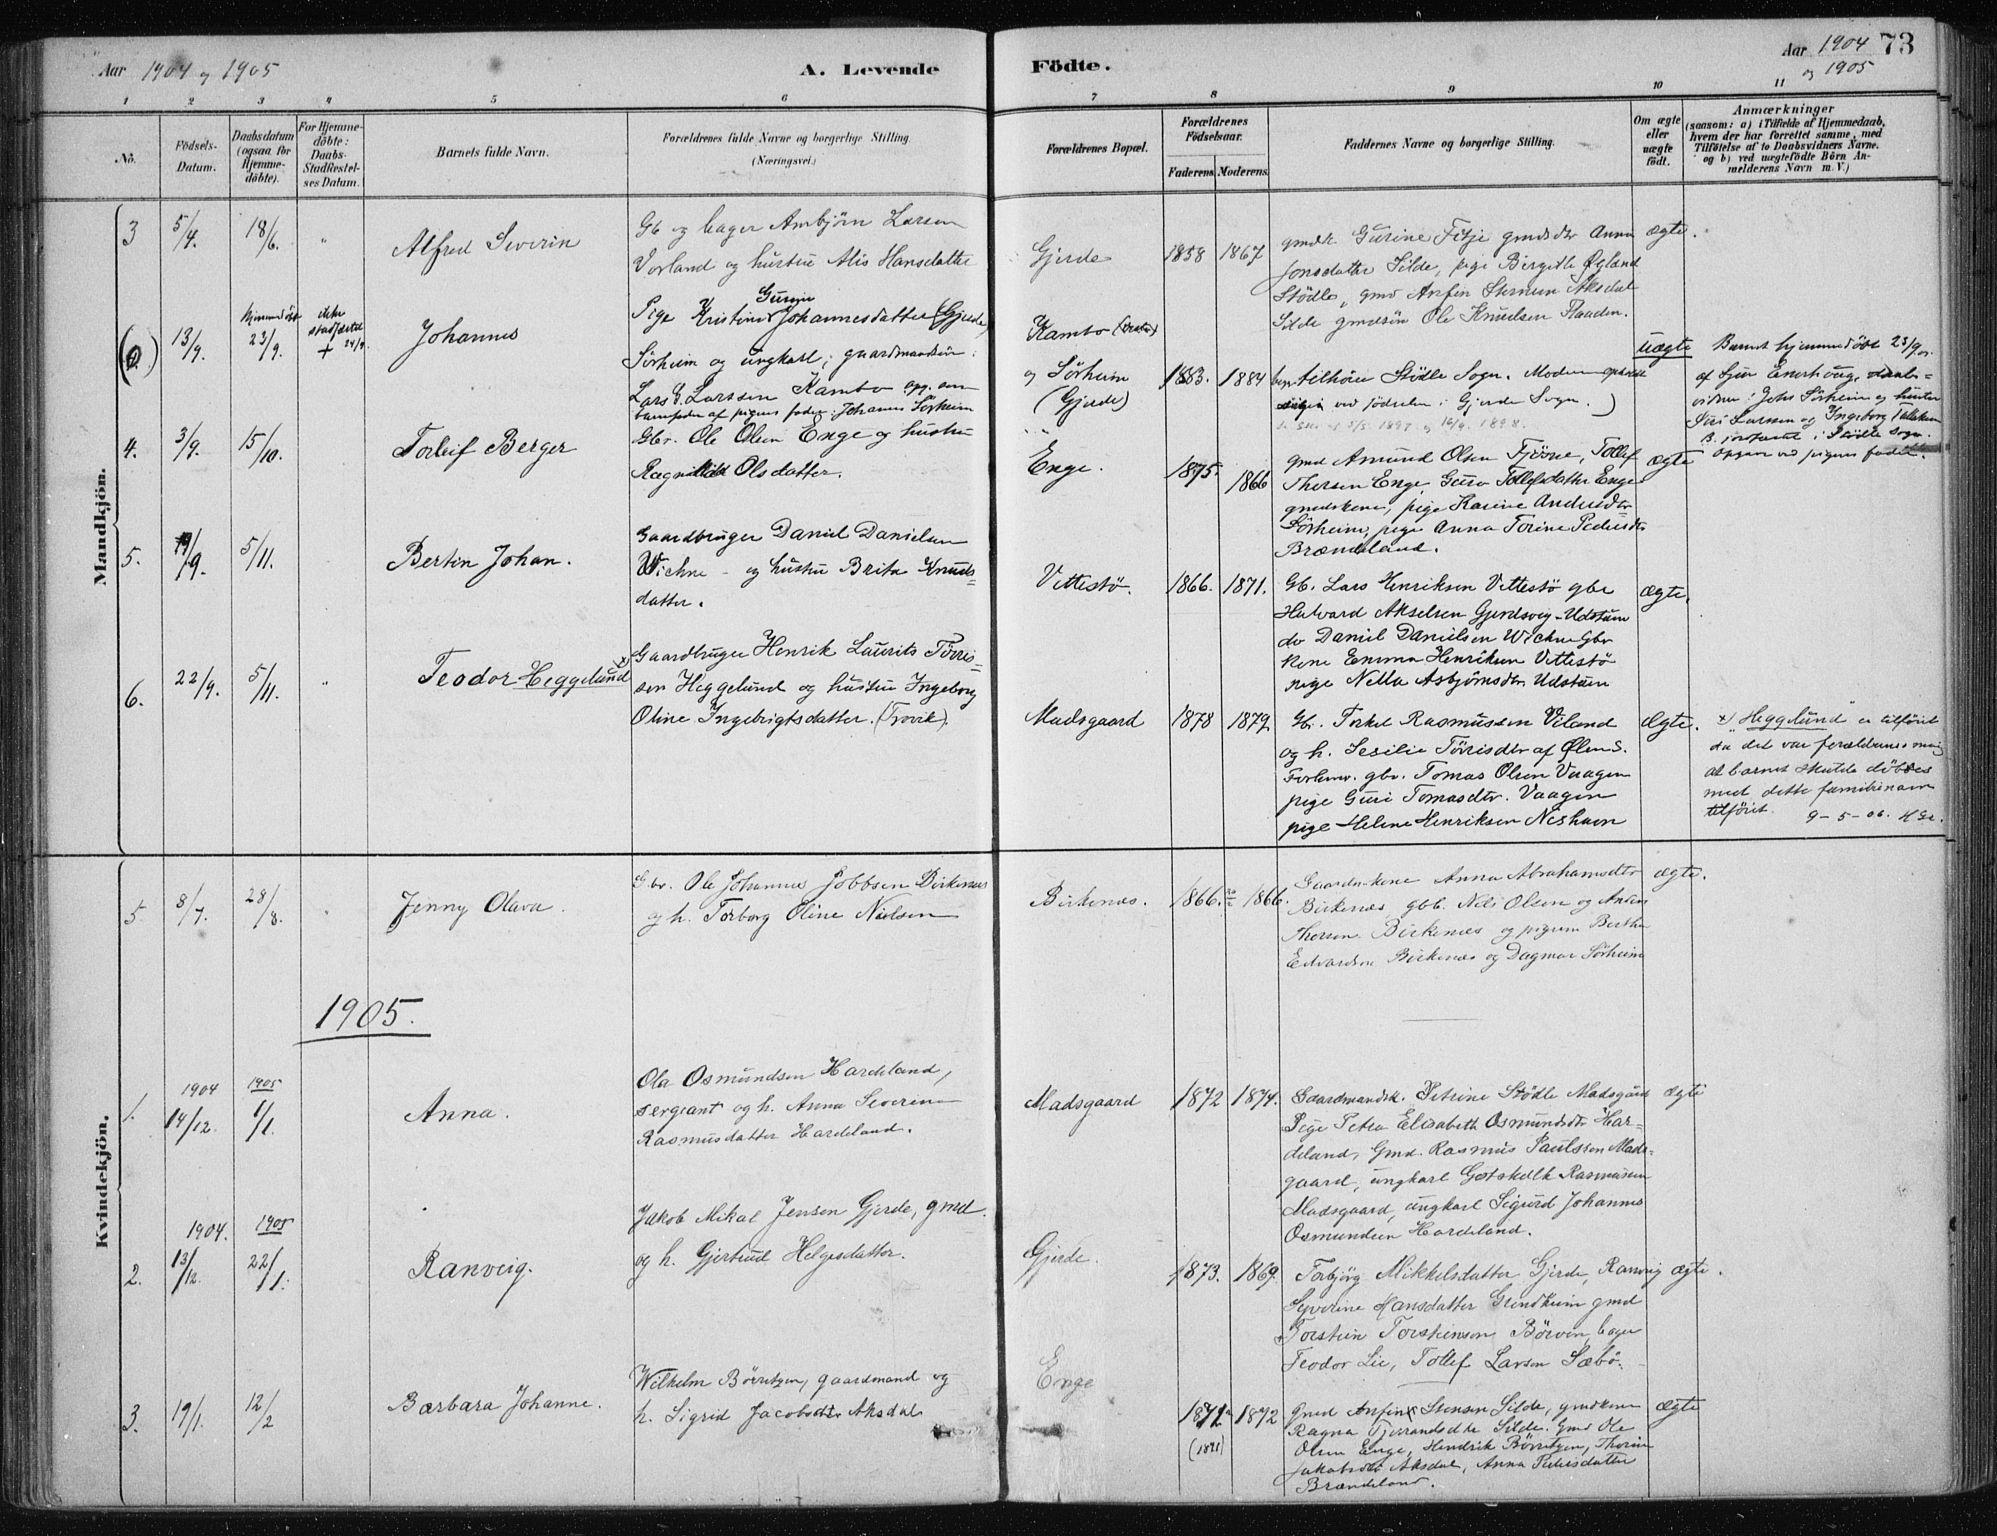 Aar 1904 og 1905
A. Levende Födte.
Aar 1904 73
og 1905
1 2 3 4 5 6 7 8 9 10 11
No.
Födsels-Datum.
Daabsdatum (ogsaa for Hjemme-döbte).
For Hjemme-döbte: Daabs-Stadfæstel-ses Datum.
Barnets fulde Navn.
Forældrenes fulde Navne og borgerlige Stilling.
(Næringsvei.)
Forældrenes Bopæl.
Forældrenes Födselsaar.
Faderens. Moderens.
Faddernes Navne og borgerlige Stilling.
Om ægte eller uægte födt.
Anmærkninger
(saasom: a) i Tilfælde af Hjemmedaab,
hvem der har forrettet samme, med
Tilföielse af to Daabsvidners Navne.
og b) ved uægtefödte Börn An-
melderens Navn m. V.)
Mandkjön.
3 5/4. 18/6. " Alfred Severin
Gb og bager Ambjörn Larsen
Vorland og hustru Alis Hansdatter
Gjerde 1858 1867
gmdk. Gurine Fitje gmdsdtr Anna
Jonsdatter Silde, pige Birgitte Øgland
Stödle, gmd Anfin Stensen Aksdal
Silde gmdsön Ole Knudsen Flaaden.
ægte.
13/9. hjemmedöbt 23/9. ikke stadfæstet + 24/9 Johannes
Pige Kristine Gurine Johannesdatter (Gjerde)
Sörheim og ungkarl, gaardmandsön:
Lars L. Larssen Kambo opg. som
barnefader af pigens fader: Johannes Sörheim
Kambo
og Sörheim
(Gjerde)
1883. 1884
tilhörer Stödle Sogn. Moderen
ved födselen i Gjerde Sogn.
uægte
Barnet hjemmedöbt 23/9
af Sjur Enerhaug, daabs-
vidner: John Sörheim og hustru
Siri Larssen og Ingeborg
B. jordfæstet i Stödle Sogn.
opgav ved pigens fader.
4. 3/9. 15/10. Torleif Berger
Gbr. Ole Olsen Enge og hustru
Ragnhild Olsdatter.
Enge. 1875. 1866
gmd Amund Olsen Fjösne, Tollef
Thorsen Enge, Guro Tollefsdatter Enge
gmdskone, pige Karine Andersdtr
Sörheim, pige Anna Torine Pedersdtr
Brændeland.
ægte
5. 19/9. 5/11. Bertin Johan.
Gaardbruger Daniel Danielsen
Wichne - og hustru Brita Knuds-
datter.
Vettestö. 1866. 1871.
Gb. Lars Henriksen Vettestö gbr
Halvard Akselsen Gjerdsvig - Udstum
do Daniel Danielsen Wichne Gbr
kone Emma Henriksen Vettestö
pige Nella Asbjörnsdtr Udstum
ægte.
6. 22/9. 5/11. " Teodor Heggelund x)
Gaardbruger Henrik Laurits Törris-
sen Heggelund og hustru Ingeborg
Oline Ingebrigtsdatter. (Trovik).
Madsgaard 1878 1879
Gb. Torkel Rasmussen Viland
og h. Sesilie Törrisdtr af Ølen S.
Forlover. gbr. Tomas Olsen Vaagen
pige Guri Tomasdtr. Vaagen
pige Helene Henriksen Neshavn
Ægte.
x) "Heggelund" er tilföiet
da det var forældrenes mening
at barnet skulde döbes
med dette familienavn
tilföiet. 9-5-06.
Kvindekjön.
5 8/7. 28/8. " Jenny Olava.
Gbr. Ole Johannes Jobbsen Birkenes
og h. Torborg Oline Nielsen
Birkenæs. 1866. 1866.
Gaardm.kone Anna Abrahamsdtr
Birkenæs gbb. Nels Olsen og Anders
Thorsen Birkenæs og pigerne Bertha
Edvardsen Birkenæs og Dagmar Sörheim
ægte.
1905.
1. 1904 14/12. 1905 1/1. Anna.
Ola Osmundsen Hardeland,
sergeant og h. Anna Severine
Rasmusdatter Hardeland.
Madsgaard 1872 1874.
Gaardmandsk. Petrine Stödle Madsgaard
Pige Petra Elisabeth Osmundsdtr Har-
deland, Gmd. Rasmus Paulssen Mads-
gaard, ungkarl Gotskalk Rasmussen
Madsgaard, ungkarl Sigurd Johannes
Osmundsen Hardeland.
ægte
2. 1904. 13/12. 1905 22/1. Ranveig.
Jakob Mikal Jensen Gjerde, gmd.
og h. Gjertrud Helgesdatter.
Gjerde. 1873. 1869.
Torbjörg Mikkelsdatter Gjerde, Ranveig
Syverine Hansdatter Grindheim gmd
Torstein Torsteinsen Börven, bager
Teodor Lie, Tollef Larsen Sæbö.
ægte.
3. 19/1. 12/2 Barbara Johanne.
Wilhelm Börretzen, gaardmand og
h. Sigrid Jacobsdtr Aksdal
Enge
1871 1872
(1871)
Gmd Anfin Stensen Silde, gmdkone
Ragna Tjerandsdtr Silde. Gmd Ole
Olsen Enge, Hendrik Börretzen, Thorine
Jakobsdtr Aksdal, Anna Pedersdatter
Brændeland.
ægte